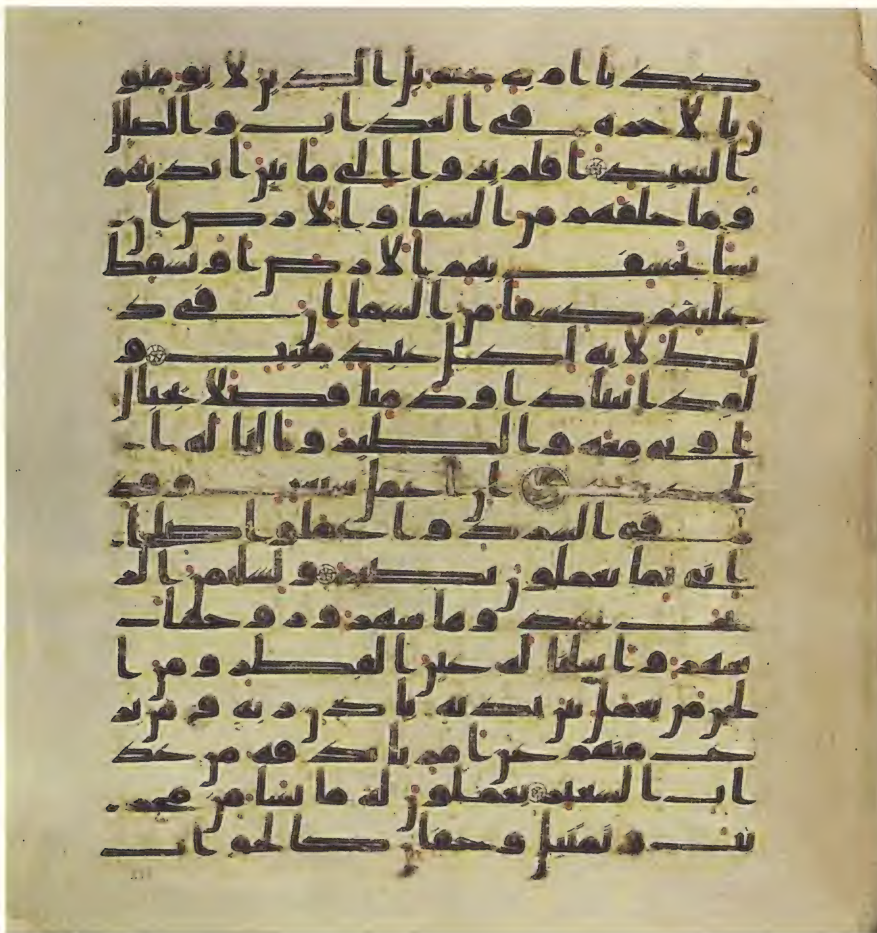 كذبا ام به جنه بل الذين لا يومنو
ن بالاخره في العذاب والضلل
البعيد افلم يروا الى ما بين ايديهم
وما خلفهم من السما والارض ان
نشا نخسف بهم الارض او نسقط
عليهم كسفا من السما ان في ذ
لك لايه لكل عبد منيب و
لقد اتينا داود منا فضلا يجبال
اوبي معه والطير والنا له ا
لحديد ان اعمل سبغت وقد
ر في السرد واعملوا صلحا
اني بما تعملون بصير ولسليمن الر
يح غدوها شهر ورواحها
شهر واسلنا له عين القطر ومن ا
لجن من يعمل بين يديه باذن ربه ومن يز
غ منهم عن امرنا نذقه من عذ
اب السعير يعملون له ما يشا من محر
يب وتمثيل وجفان كالجواب